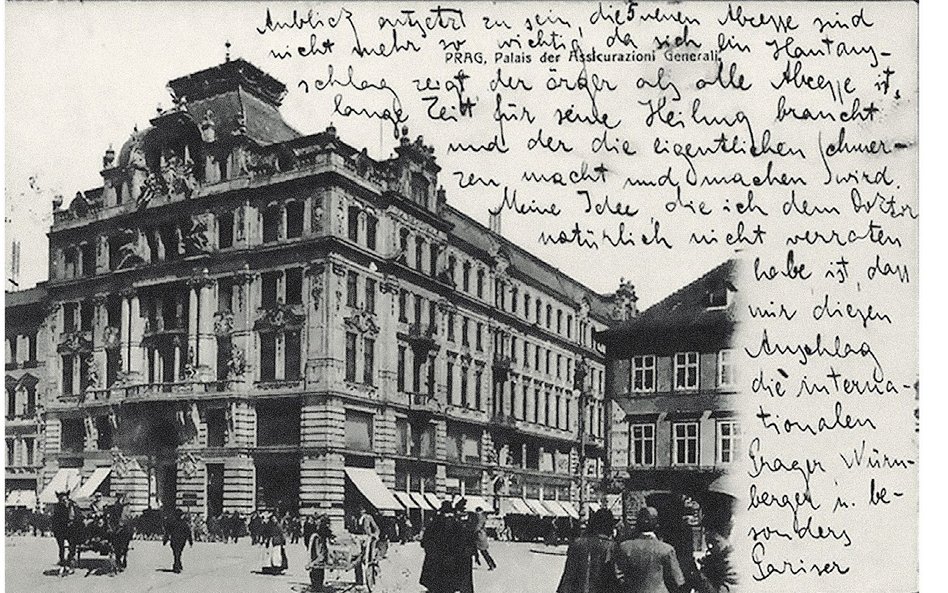 Anblick entsetzt zu sein, die 5 neuen Abcesse sind
nicht mehr so wichtig da sich ein Hautaus-
PRAG, Palais der Assicurazioni Generali.
schlag zeigt der ärger als alle Abcesse ist,
lange Zeit für seine Heilung braucht
und der die eigentlichen Schmer-
zen macht und machen wird.
Meine Idee, die ich dem Doktor
natürlich nicht verraten
habe, ist, dass
mir diesen
Ausschlag
die interna-
tionalen
Prager Nürn-
berger u. be-
sonders
Pariser